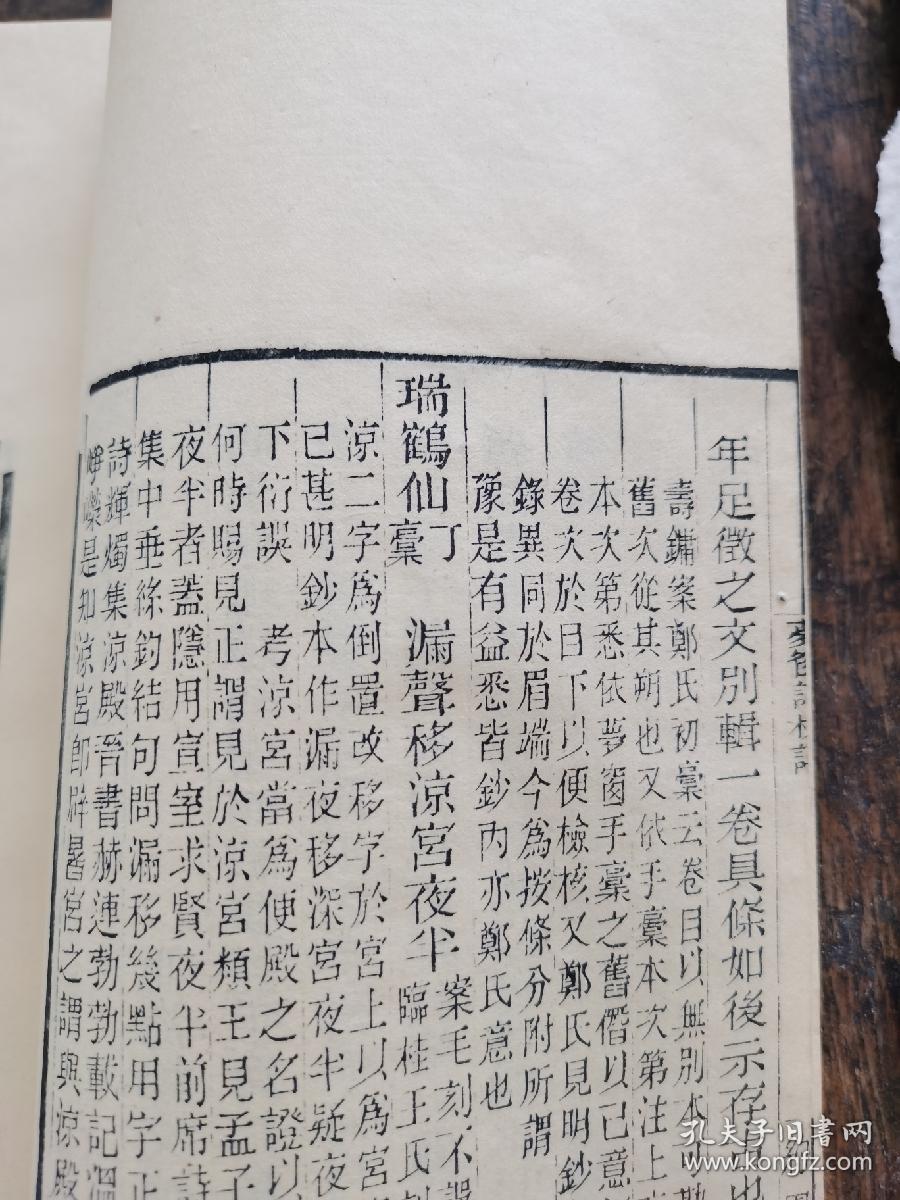 年足徵之文別輯一卷具條如後示存
壽鏞案鄭氏初稾云卷目以無別本
舊次從其朔也又依手稾本次第注上
本次第悉依夢窗手稾之舊僭以己意
卷次於目下以便檢核又鄭氏見明鈔
錄異同於眉端今為按條分附所謂
豫是有益悉皆鈔內亦鄭氏意也
瑞鶴仙 丁稾 漏聲移涼宮夜半 案毛刻不誤臨桂王氏
涼二字為倒置改移字於宮上以為宮
已甚明鈔本作漏夜移深宮夜半疑夜
下衍誤 考涼宮當為便殿之名證以
何時賜見正謂見於涼宮類王見孟子
夜半者蓋隱用宣室求賢夜半前席詩
集中垂絲釣結句問漏移幾點用字正
詩輝燭集涼殿晉書赫連勃勃載記溫
崢嶸是知涼宮即辟暑宮之謂與涼殿
孔夫子旧书网